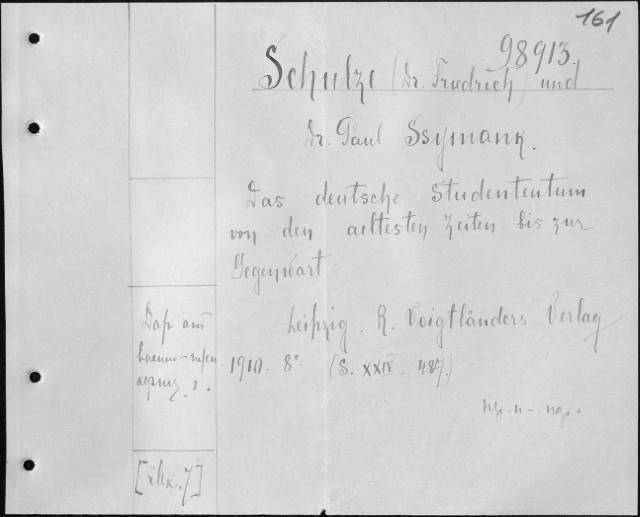 161
98913.
Schulze (Dr. Friedrich) und
Dr. Paul Ssymank.
Das deutsche Studententum
von den aeltesten Zeiten bis zur
Gegenwart
Leipzig. R. Voigtländers Verlag
1910. 8° (S. XXIV. 487.)